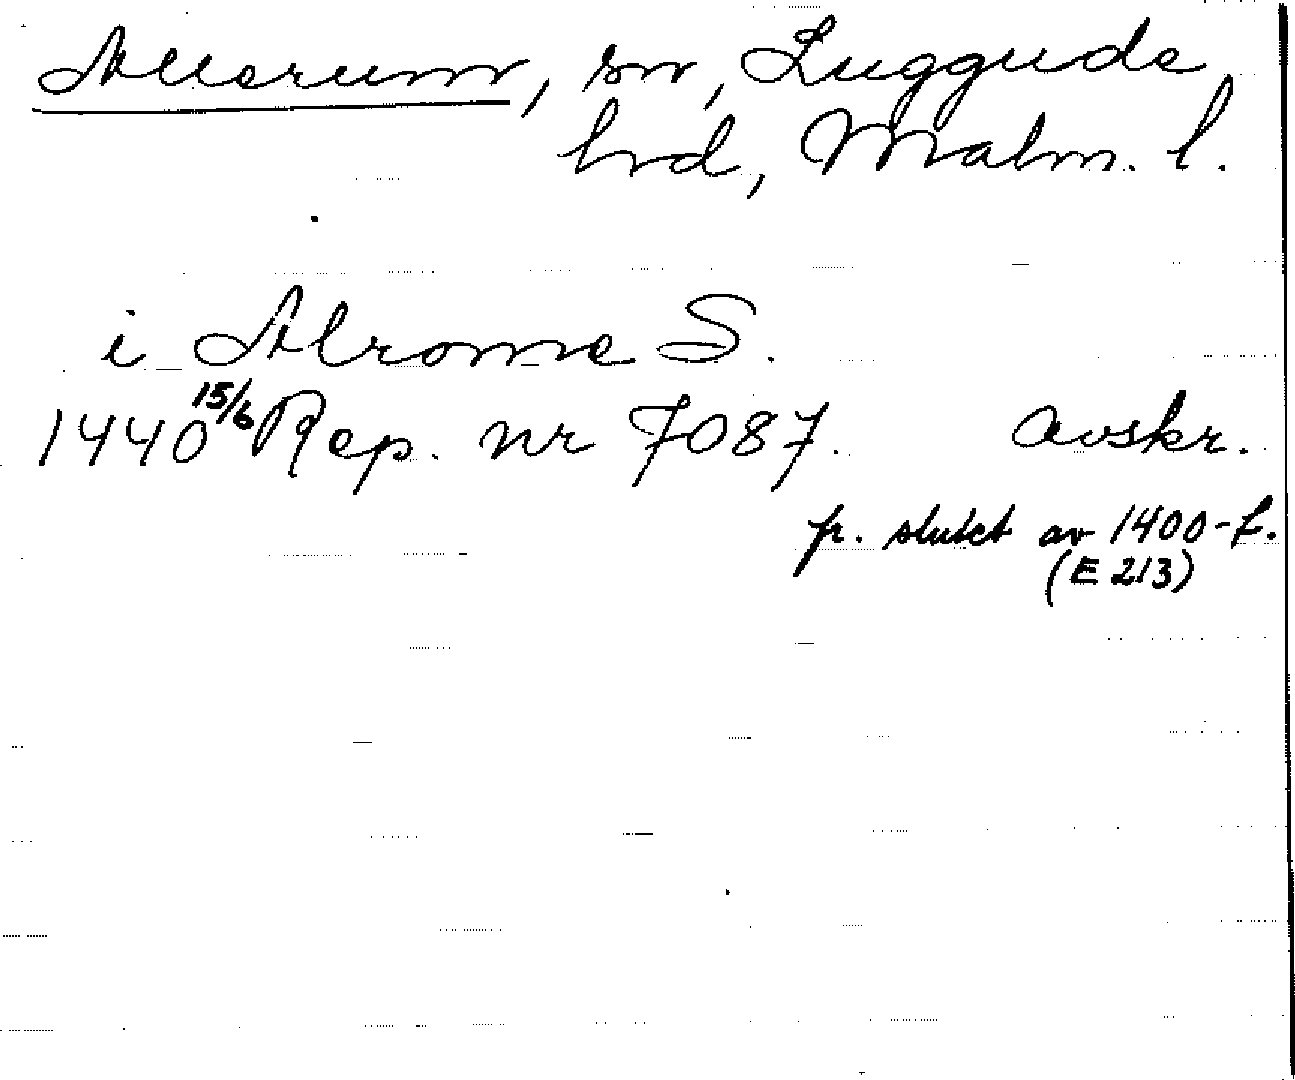 Allerum, sn, Luggude
hrd, Malm. l.
i Alrome S.
1440 15/6 Rep. nr 7087. avskr.
fr. slutet av 1400-t.
(E 213)